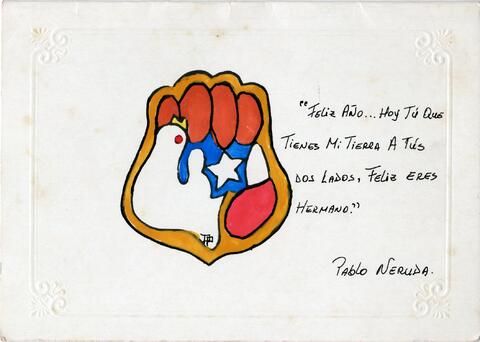 "Feliz Año...Hoy Tú Que
Tienes Mi Tierra A Tús
dos Lados, Feliz eres
Hermano."
Pablo Neruda.